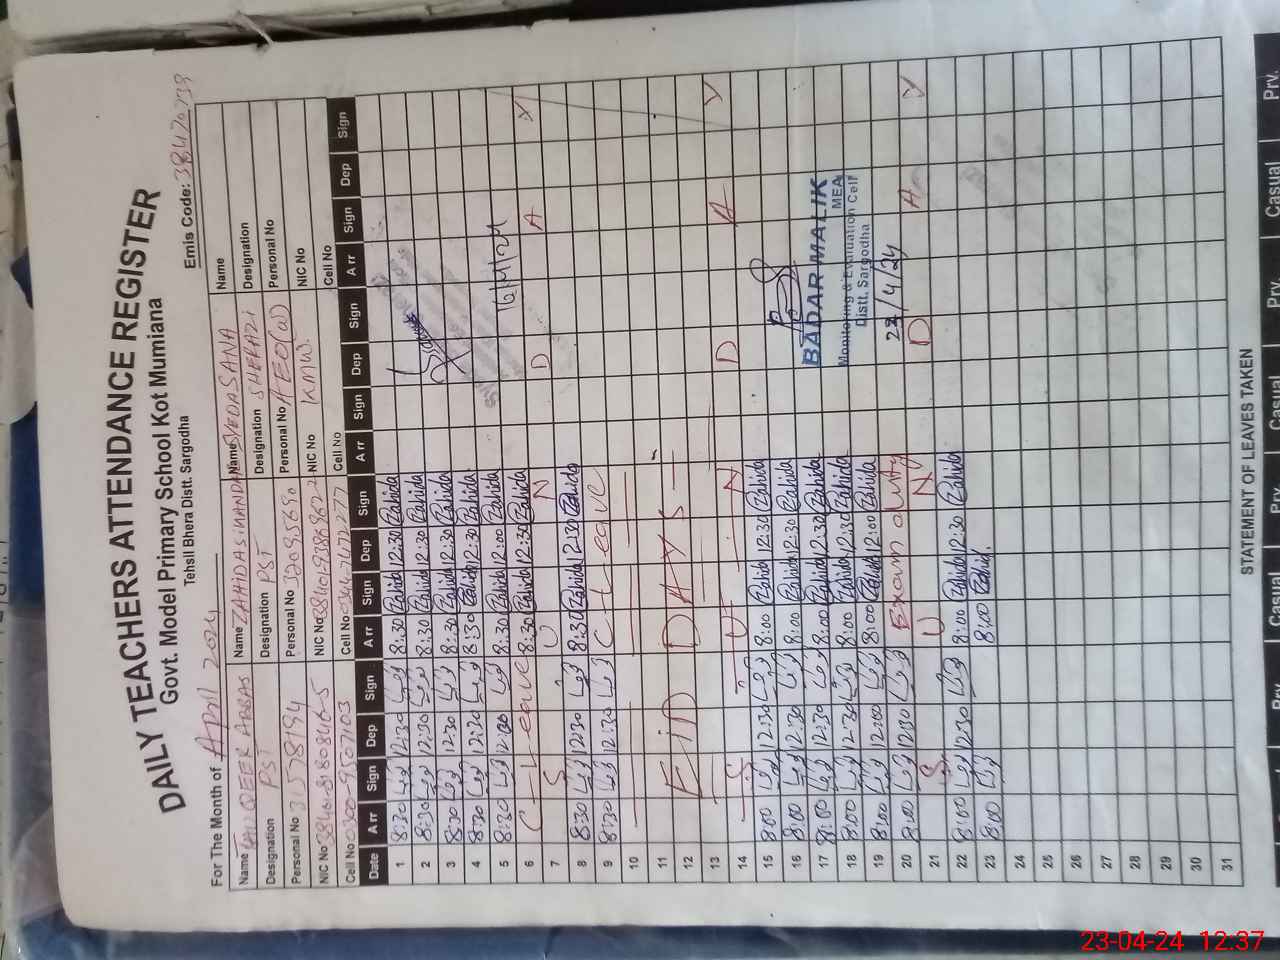 DAILY TEACHERS ATTENDANCE REGISTER
Govt. Model Primary School Kot Mumiana
Tehsil Bhera Distt. Sargodha
For The Month of April 2024 Emis Code: 38420739
Name ABBAS Name ZAHIDA Name SYEDA SANA Name
Designation PST Designation PST Designation SHERAZI Designation
Personal No 31578194 Personal No 32095690 Personal No AEO(W) Personal No
NIC No NIC No NIC No KMW. NIC No
Cell No 0300-9507103 Cell No 0344-7472277 Cell No Cell No
Date Arr Sign Dep Sign Arr Sign Dep Sign Arr Sign Dep Sign Arr Sign Dep Sign
1 8:30 12:30 8:30 Zahida 12:30 Zahida
2 8:30 12:30 8:30 Zahida 12:30 Zahida
3 8:30 12:30 8:30 Zahida 12:30 Zahida
4 8:30 12:30 8:30 Zahida 12:30 Zahida
5 8:30 8:30 Zahida 12:00 Zahida 16/4/24
6 C-Leave 8:30 Zahida 12:30 Zahida
7 S U N D A Y
8 8:30 12:30 8:30 Zahida 12:30 Zahida
9 8:30 12:30 C-Leave
10
11 EID DAYS
12
13
14 S U N D A Y
15 8:00 12:30 8:00 Zahida 12:30 Zahida
16 8:00 12:30 8:00 Zahida 12:30 Zahida
17 8:00 12:30 8:00 Zahida 12:30 Zahida
18 8:00 12:30 8:00 Zahida 12:30 Zahida
19 8:00 12:00 8:00 Zahida 12:00 Zahida
20 8:00 12:30 Exam duty
21 S U N D A Y
22 8:00 12:30 8:00 Zahida 12:30 Zahida
23 8:00 8:00 Zahida
24
25
26
27
28
29
30
31
BADAR MALIK
MEA
Monitoring & Evaluation Cell
Distt. Sargodha
22/4/24
STATEMENT OF LEAVES TAKEN
Prv. Casual Prv. Casual Prv. Casual Prv.
23-04-24 12:37